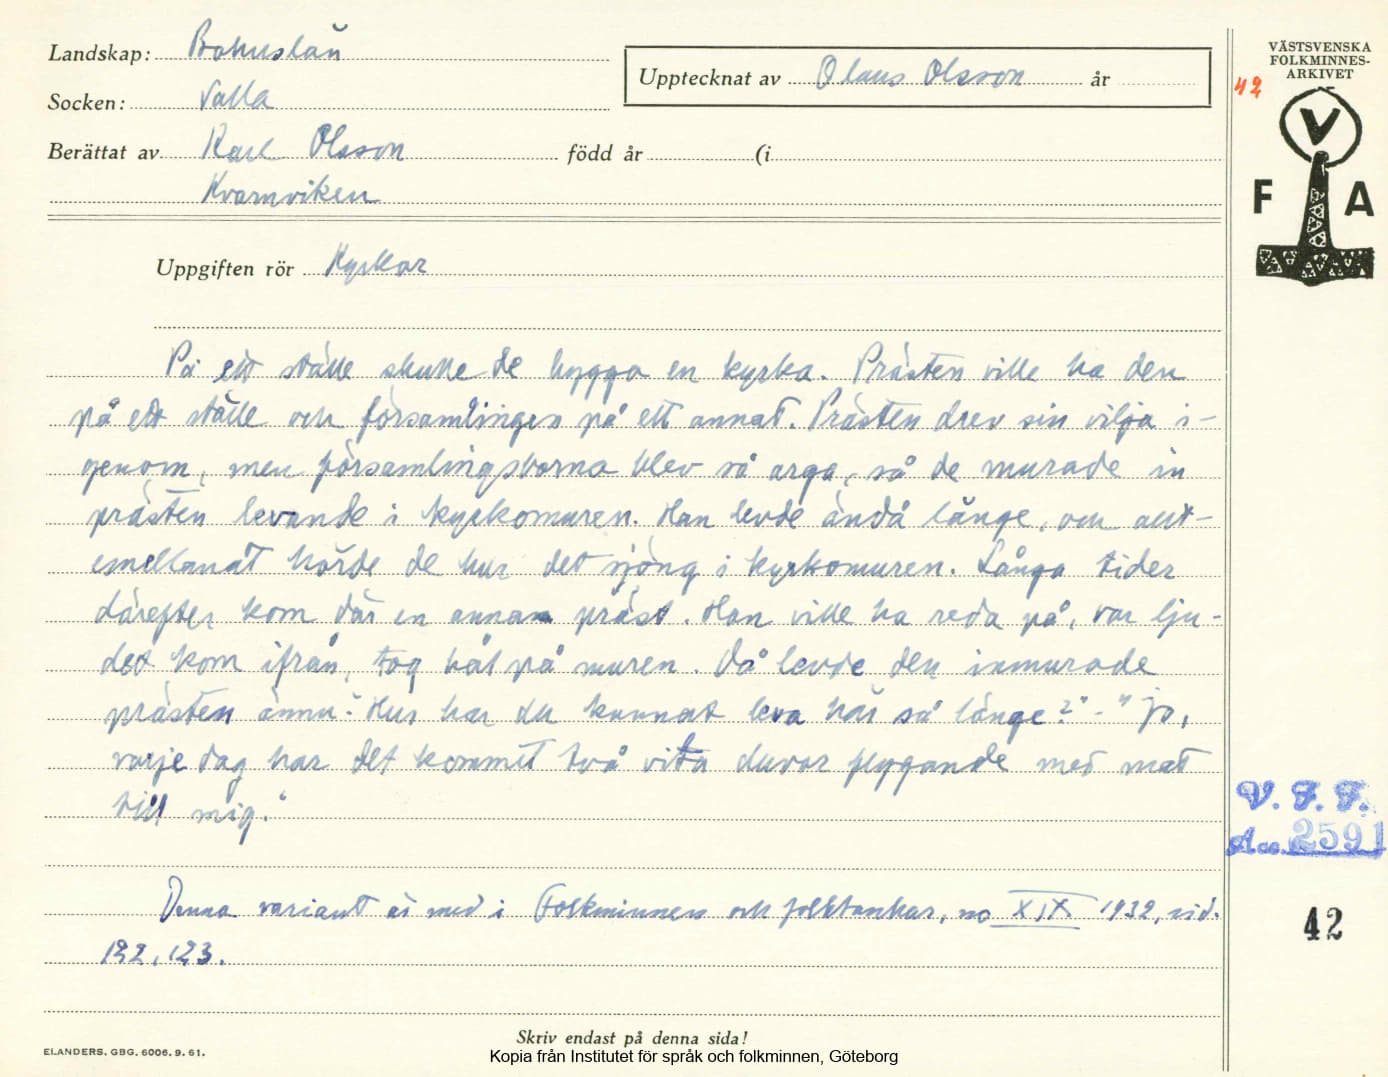 Landskap: Bohuslän
Socken: Valla
Berättat av Karl Olsson född år (i
Kvarnviken
Upptecknat av Olaus Olsson år
VÄSTSVENSKA
FOLKMINNES-
ARKIVET
42
V
F A
Uppgiften rör Kyrkor
På ett ställe skulle de bygga en kyrka. Prästen ville ha den
på ett ställe och församlingen på ett annat. Prästen drev sin vilja i-
genom, men församlingsborna blev så arga, så de murade in
prästen levande i kyrkomuren. Han levde ändå länge, och allt-
emellanåt hörde de hur det sjöng i kyrkomuren. Långa tider
därefter kom där en annan präst. Han ville ha reda på, var lju-
det kom ifrån, tog hål på muren. Då levde den inmurade
prästen ännu. "Hur har du kunnat leva här så länge?" - "Jo,
varje dag har det kommit två vita duvor flygande med mat
till mig."
Denna variant är med i Folkminnen och folktankar, no XIX 1932, sid.
122, 123.
V. F. F.
Acc. 2591
42
Skriv endast på denna sida!
ELANDERS. GBG. 6006. 9. 61.
Kopia från Institutet för språk och folkminnen, Göteborg